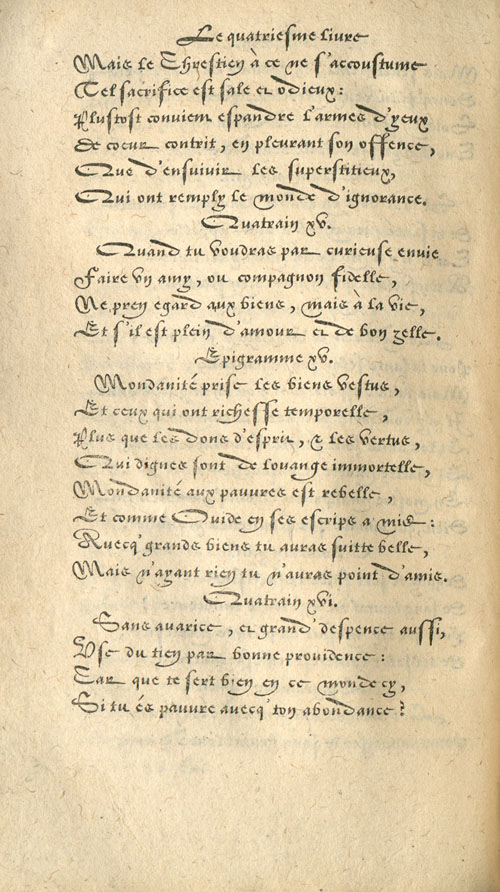 Le quatriesme livre
Mais le Chrestien à ce ne s'accoustume
Tel sacrifice est sale et odieux:
Plustost convient espandre l'armes d'yeux
De coeur contrit, en pleurant son offence,
Que d'ensuivir les superstitieux,
Qui ont remply le monde d'ignorance.
Quatrain xv.
Quand tu voudras par curieuse envie
Faire vn amy, ou compagnon fidelle,
Ne pren egard aux biens, mais à la vie,
Et s'il est plein d'amour et de bon zelle.
Epigramme xv.
Mondanité prise les biens vestus,
Et ceux qui ont richesse temporelle,
Plus que les dons d'esprit, & les vertus,
Qui dignes sont de louange immortelle,
Mondanité aux pauvres est rebelle,
Et comme Ouide en ses escrips a mis:
Avecq' grands biens tu auras suitte belle,
Mais n'ayant rien tu n'auras point d'amis.
Quatrain xvi.
Sans avarice, et grand' despence aussi,
Vse du tien par bonne providence:
Car que te sert bien en ce monde cy,
Si tu és pauvre avecq' ton abondance?